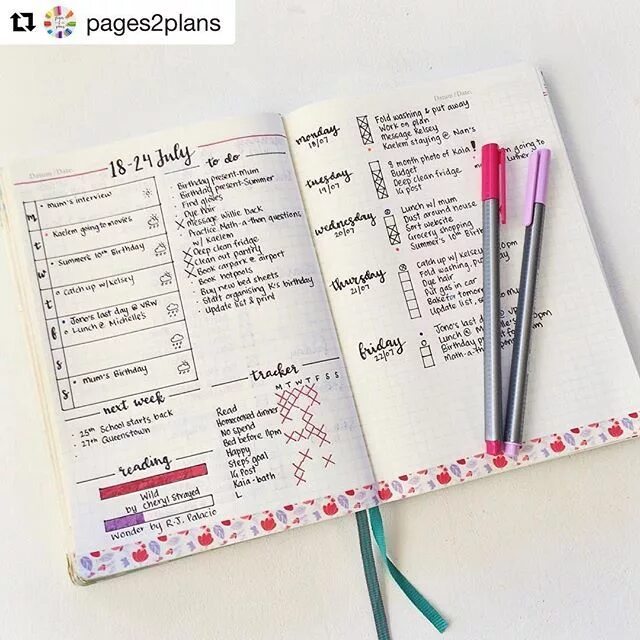 pages2plans
Datum / Date:
18-24 July
m • mum's interview
t • Kaelem going to movies
w • Summer's 10th Birthday
t • Catch up w/ Kelsey
f • Jono's last day @ VRW
o Lunch @ Michelle's
s
s • Mum's Birthday
to do
Birthday present-Mum
Birthday present-Summer
Find gloves
Dye hair
Message Willie back
Practice Math-a-thon questions
w/ Kaelem
Deep clean fridge
Clean out pantry
Book carpark @ airport
Book hotpools
Buy new bed sheets
Start organising K's birthday
Update list & print
next week
25th School starts back
27th Queenstown
reading
Wild
by Cheryl Strayed
Wonder by R.J. Palacio
tracker
M T W T F S S
Read
Homecooked dinner
No spend
Bed before 11pm
Happy
Steps goal
IG Post
Kaia-bath
L
Datum / Date:
monday
18/07
Fold washing & put away
Work on plan
Message Kelsey
Kaelem staying @ Nan's
tuesday
19/07
9 month photo of Kaia!
Budget
Deep clean fridge
IG post
going to
wednesday
20/07
Lunch w/ mum
Dust around house
Sort website
Grocery shopping
Summer's 10th Birthday
thursday
21/07
Catch up w/ Kelsey
Fold washing, put
Dye hair
Put gas in car
Bake for
Update list,
friday
22/07
Jono's last day @
Lunch @
Birthday
Math-a-thon